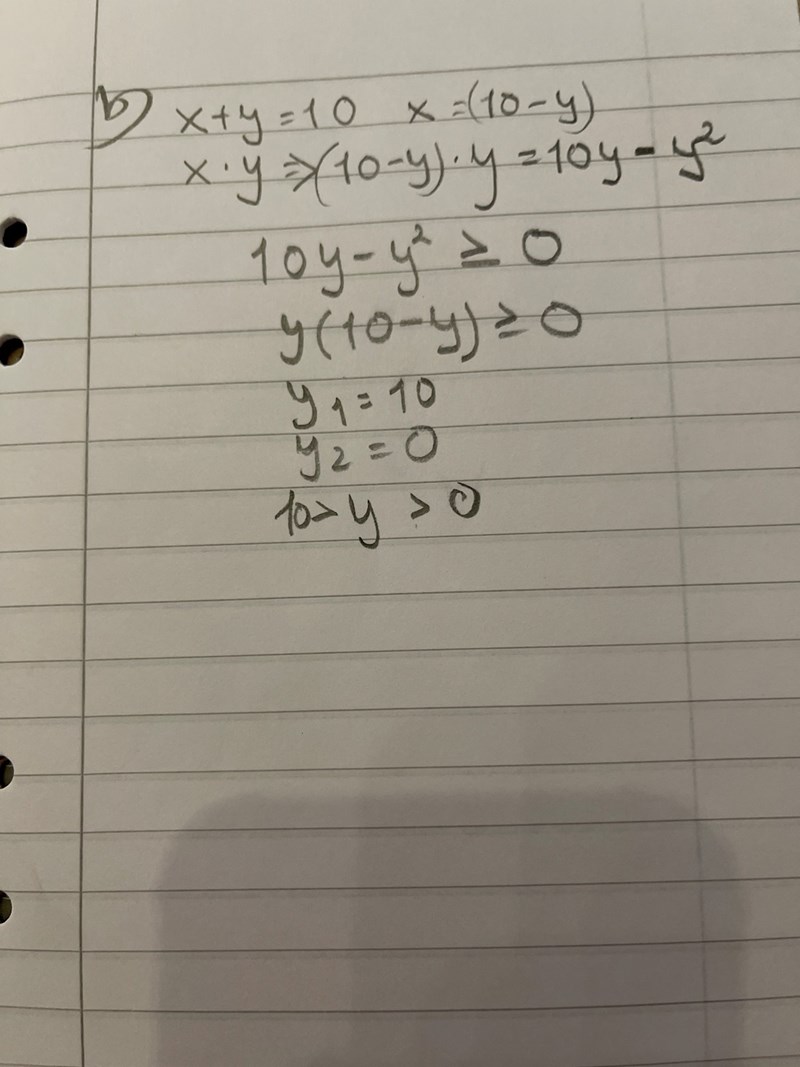 b) x+y=10 x=(10-y)
x·y=>(10-y)·y=10y-y²
10y-y² ≥ 0
y(10-y)≥0
y₁=10
y₂=0
10>y>0